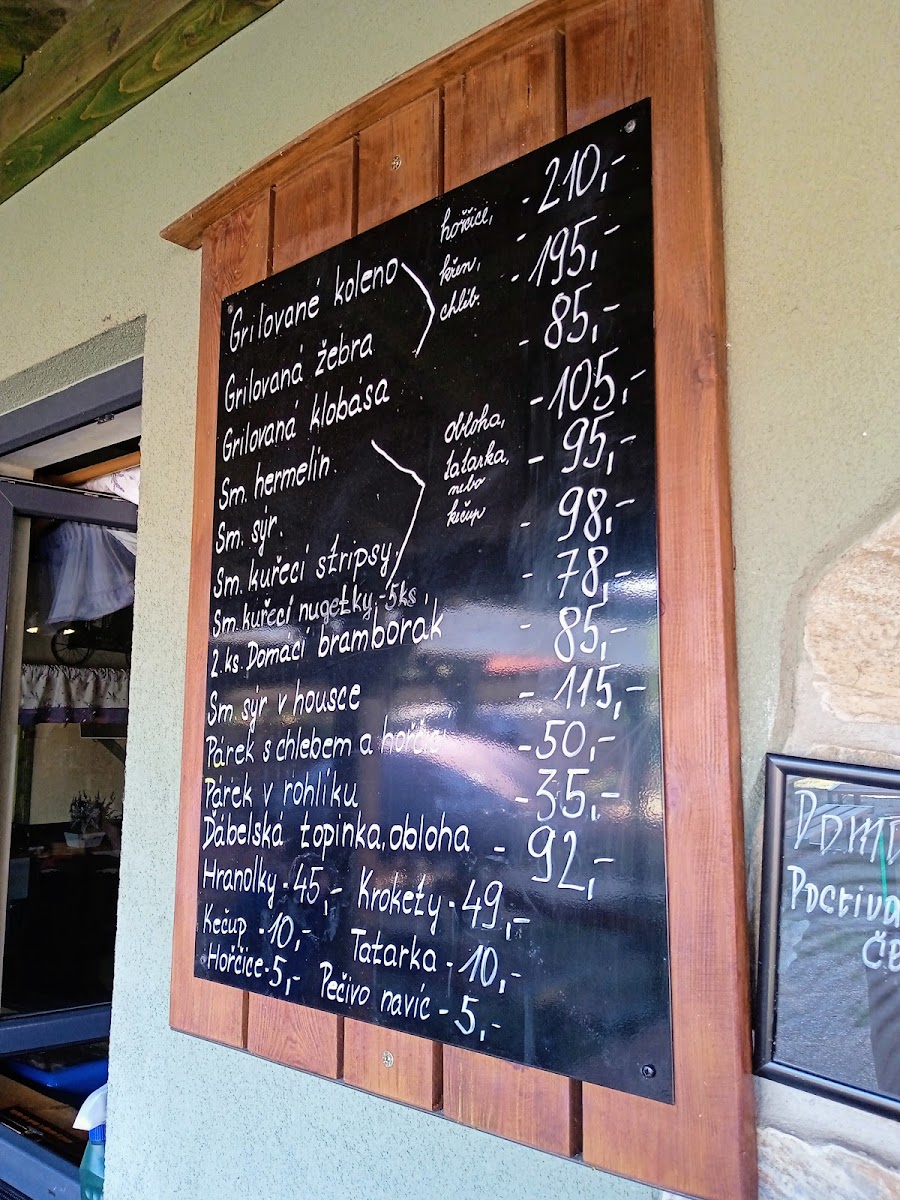 Grilované koleno hořčice, - 210,-
Grilovaná žebra křen, - 195,-
Grilovaná klobása chléb. - 85,-
Sm. hermelín. - 105,-
Sm. sýr. obloha, - 95,-
Sm. kuřecí stripsy, tatarka, - 98,-
nebo
kečup
Sm. kuřecí nugetky,-5ks, - 78,-
2.ks. Domácí bramborák - 85,-
Sm. sýr v housce - 115,-
Párek s chlebem a hořčicí -50,-
Párek v rohlíku -35,-
Ďábelská topinka, obloha - 92,-
Hranolky - 45,- Krokety - 49,-
Kečup - 10,- Tatarka - 10,-
Hořčice - 5,- Pečivo navíc - 5,-